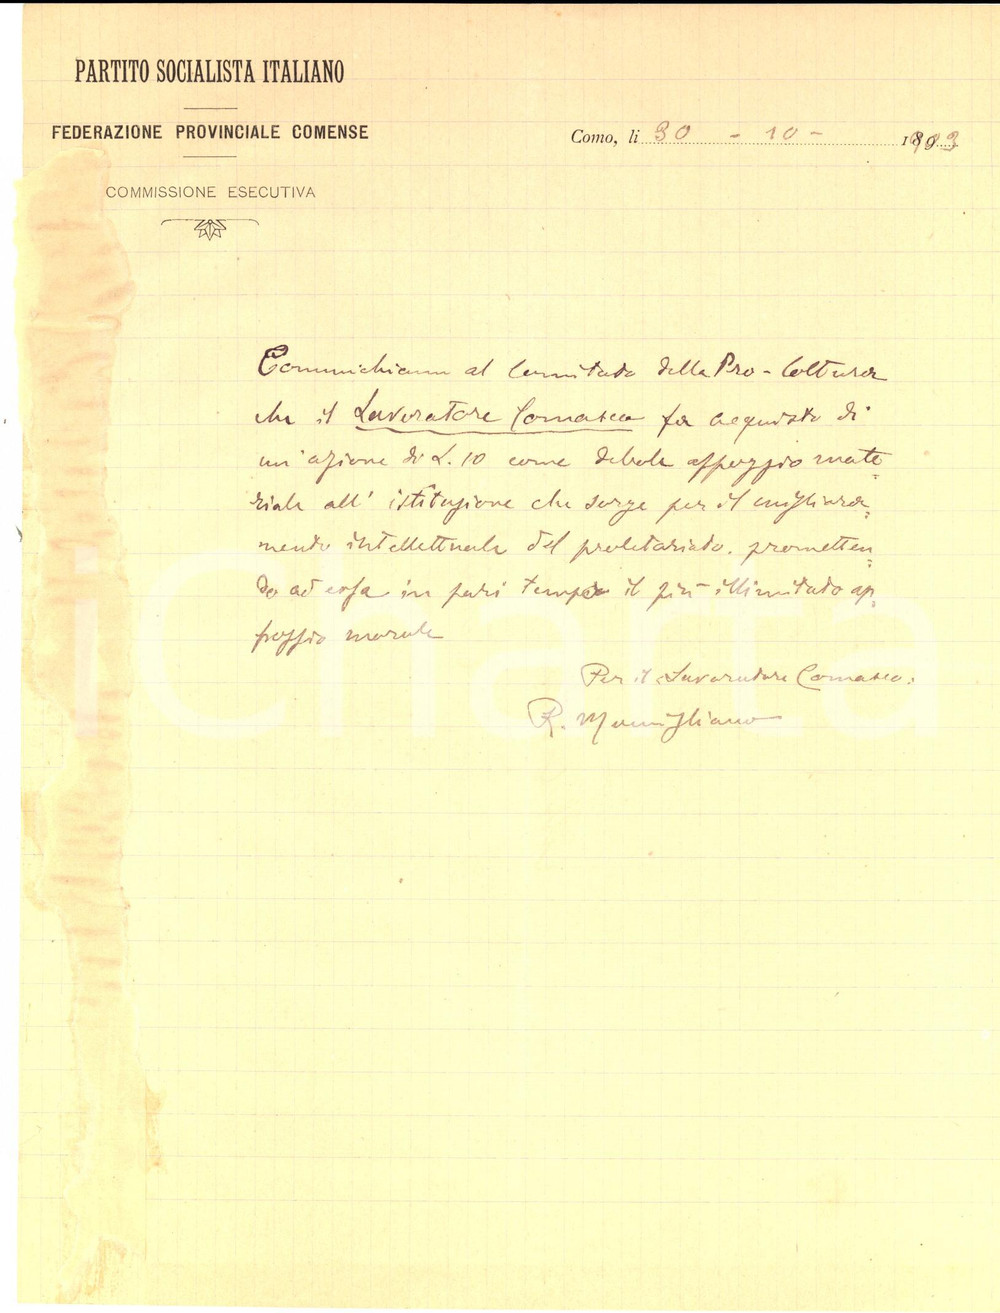 PARTITO SOCIALISTA ITALIANO
FEDERAZIONE PROVINCIALE COMENSE
Como, li 30 - 10 - 1903
COMMISSIONE ESECUTIVA
Comunichiamo al Comitato della Pro-Coltura
che il Lavoratore Comasco fa acquisto di
un'azione di L. 10 come debole appoggio mate-
riale all' istituzione che sorge per il migliora-
mento intellettuale del proletariato, prometten-
do ad essa in pari tempo il più illimitato ap-
poggio morale
Per il Lavoratore Comasco:
R. Momigliano
iCharta